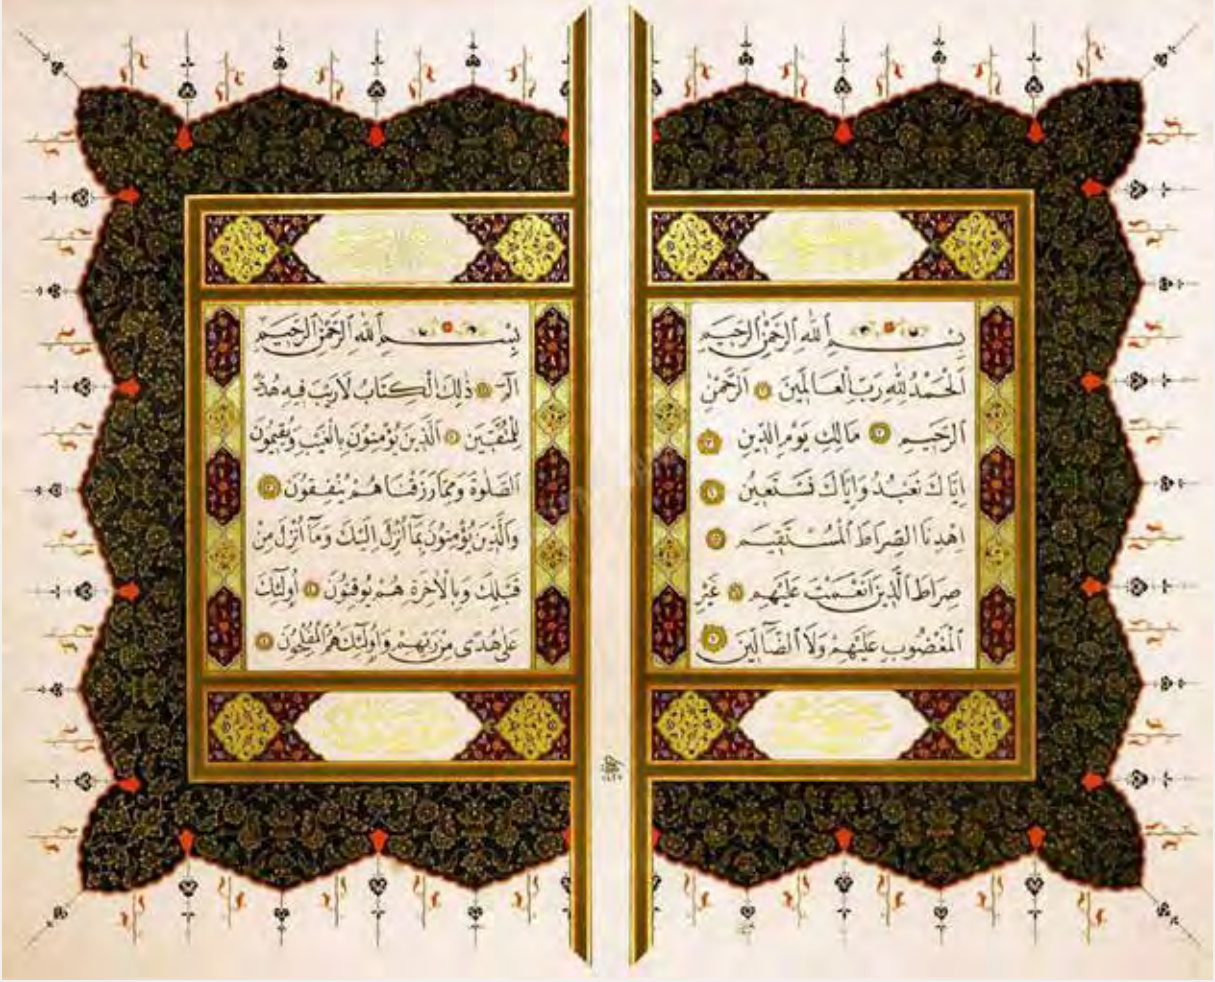 بِسْمِ اللّٰهِ الرَّحْمٰنِ الرَّحِيمِ
اَلْحَمْدُ لِلّٰهِ رَبِّ الْعَالَمِينَ ١ اَلرَّحْمٰنِ
الرَّحِيمِ ٢ مَالِكِ يَوْمِ الدِّينِ ٣
اِيَّاكَ نَعْبُدُ وَاِيَّاكَ نَسْتَعِينُ ٤
اِهْدِنَا الصِّرَاطَ الْمُسْتَقِيمَ ٥
صِرَاطَ الَّذِينَ اَنْعَمْتَ عَلَيْهِمْ ٦ غَيْرِ
الْمَغْضُوبِ عَلَيْهِمْ وَلَا الضَّٓالِّينَ ٧
بِسْمِ اللّٰهِ الرَّحْمٰنِ الرَّحِيمِ
الٓمٓ ١ ذٰلِكَ الْكِتَابُ لَا رَيْبَ فِيهِ هُدًى
لِلْمُتَّقِينَ ٢ اَلَّذِينَ يُؤْمِنُونَ بِالْغَيْبِ وَيُقِيمُونَ
الصَّلٰوةَ وَمِمَّا رَزَقْنَاهُمْ يُنْفِقُونَ ٣
وَالَّذِينَ يُؤْمِنُونَ بِمَٓا اُنْزِلَ اِلَيْكَ وَمَٓا اُنْزِلَ مِنْ
قَبْلِكَ وَبِالْاٰخِرَةِ هُمْ يُوقِنُونَ ٤ اُولٰٓئِكَ
عَلٰى هُدًى مِنْ رَبِّهِمْ وَاُولٰٓئِكَ هُمُ الْمُفْلِحُونَ ٥